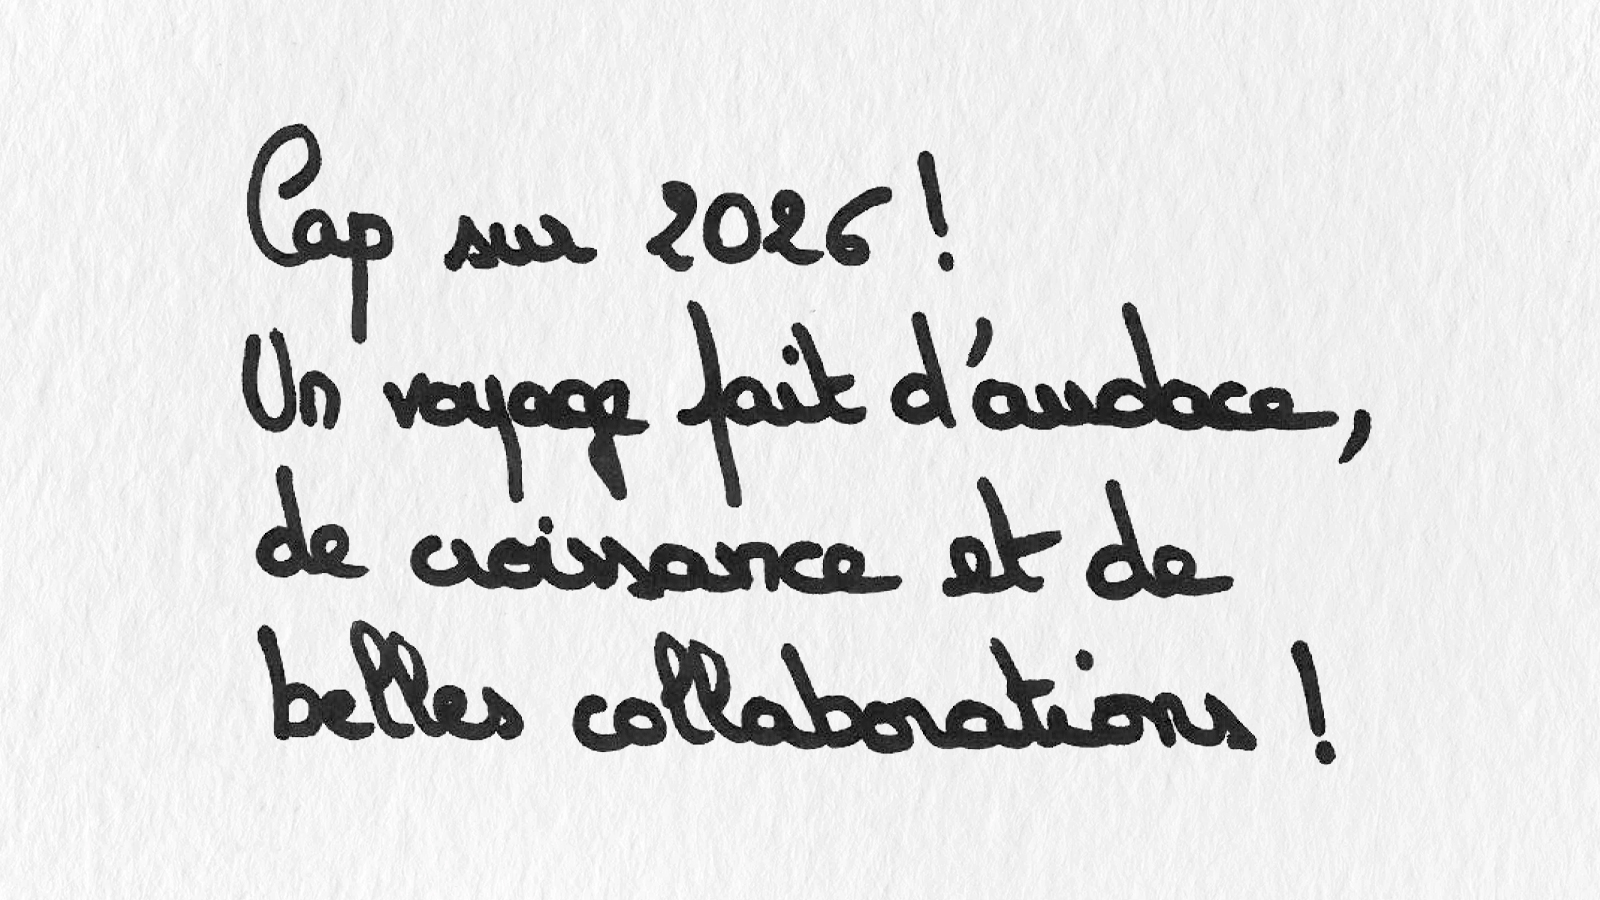 Cap sur 2026 !
Un voyage fait d'audace,
de croissance et de
belles collaborations !